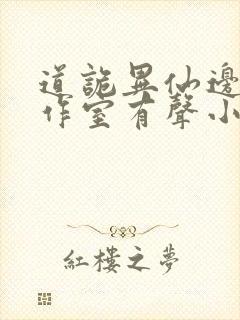 道詭異仙邊
作室有聲小
紅樓之夢